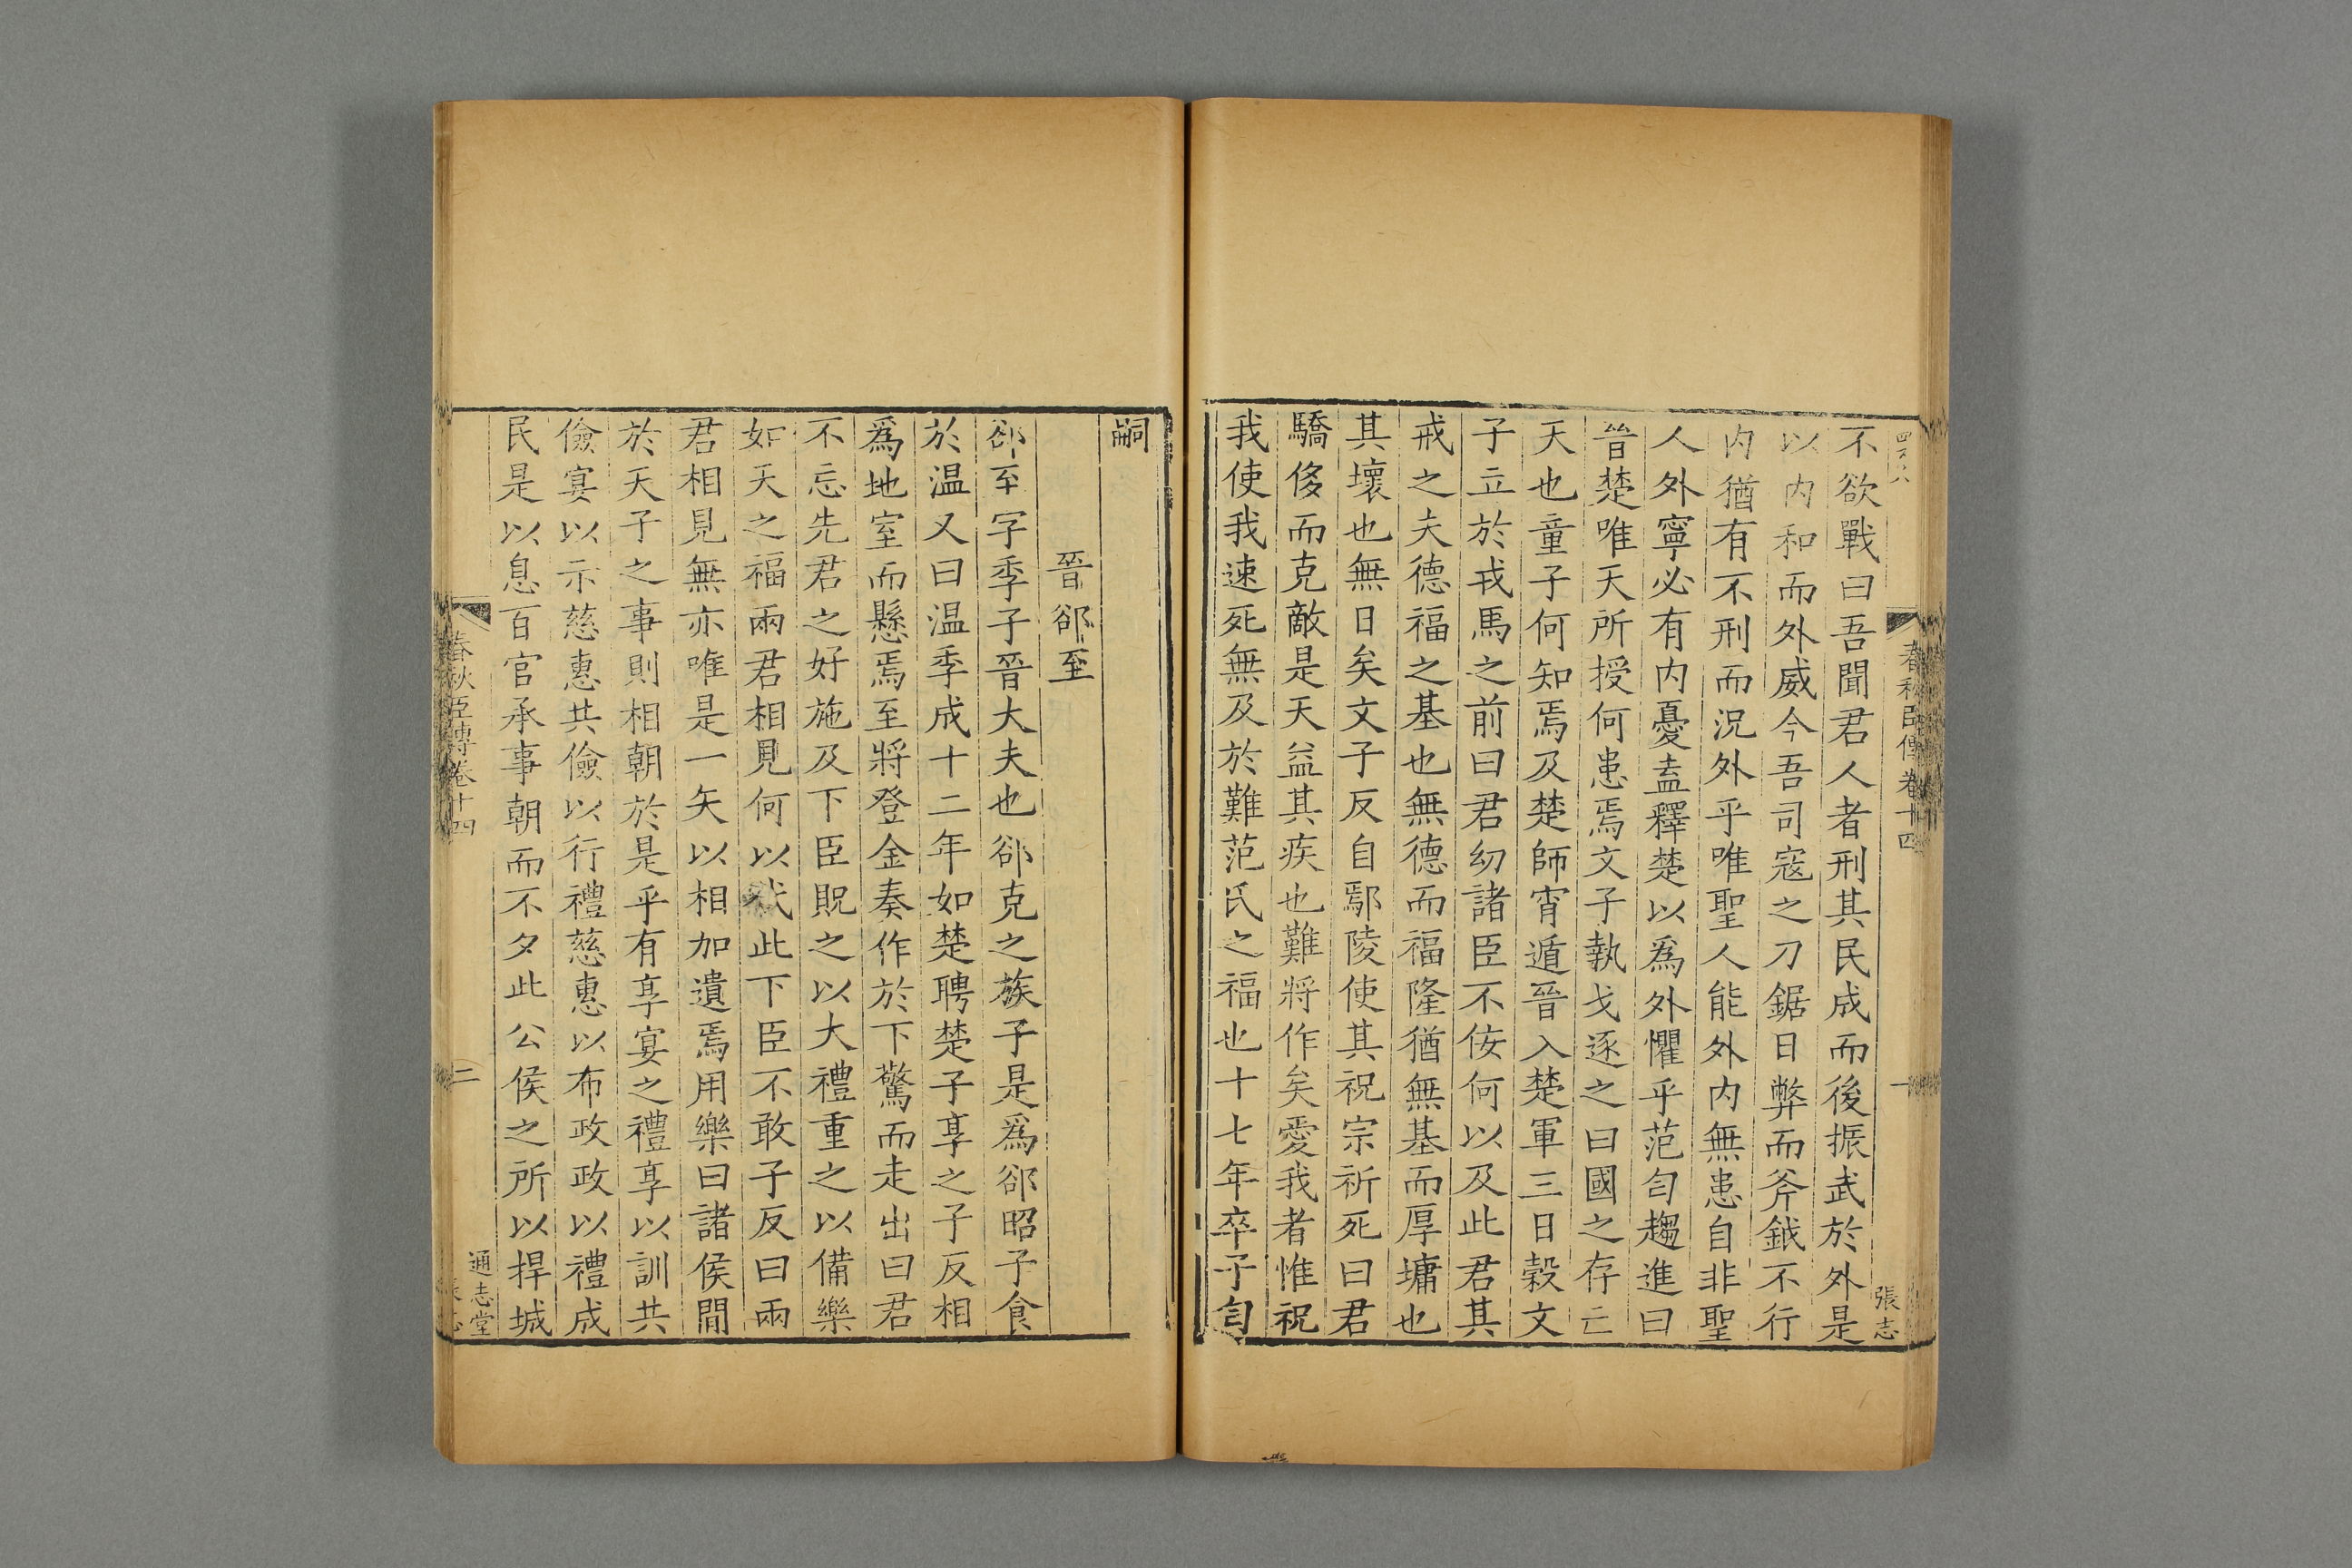 春秋臣傳卷十四
一
張志
不欲戰曰吾聞君人者刑其民成而後振武於外是
以内和而外威今吾司寇之刀鋸日弊而斧鉞不行
内猶有不刑而況外乎唯聖人能外内無患自非聖
人外寧必有内憂盍釋楚以爲外懼乎范匄趨進曰
晉楚唯天所授何患焉文子執戈逐之曰國之存亡
天也童子何知焉及楚師宵遁晉入楚軍三日穀文
子立於戎馬之前曰君幼諸臣不佞何以及此君其
戒之夫德福之基也無德而福隆猶無基而厚墉也
其壞也無日矣文子反自鄢陵使其祝宗祈死曰君
驕侈而克敵是天益其疾也難將作矣愛我者惟祝
我使我速死無及於難范氏之福也十七年卒子匄
嗣
晉郤至
郤至字季子晉大夫也郤克之族子是爲郤昭子食
於温又曰温季成十二年如楚聘楚子享之子反相
爲地室而懸焉至將登金奏作於下驚而走出曰君
不忘先君之好施及下臣貺之以大禮重之以備樂
如天之福兩君相見何以代此下臣不敢子反曰兩
君相見無亦唯是一矢以相加遺焉用樂曰諸侯間
於天子之事則相朝於是乎有享宴之禮享以訓共
儉宴以示慈惠共儉以行禮慈惠以布政政以禮成
民是以息百官承事朝而不夕此公侯之所以捍城
春秋臣傳卷十四
二
通志堂